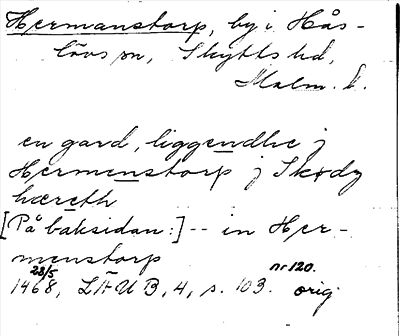 Hermanstorp, by i Hås-
lövs sn, Skytts hd,
Malm. l.
en gard, liggendhe j
Hermenstorp j Skødz
hæreth
[På baksidan:] -- in Her-
menstorp
23/5 nr 120.
1468, LÄUB, 4, s. 103. orig.